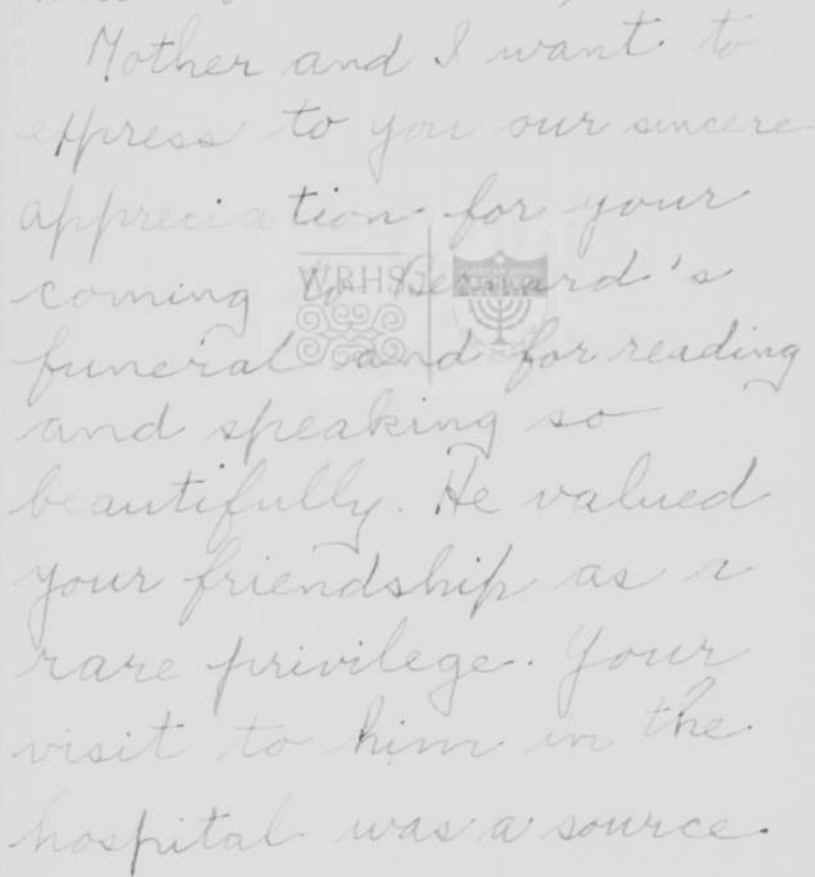 Mother and I want to
express to you our sincere
appreciation for your
coming to Bernard's
funeral and for reading
and speaking so
beautifully. He valued
your friendship as a
rare privilege. Your
visit to him in the
hospital was a source
WRHS